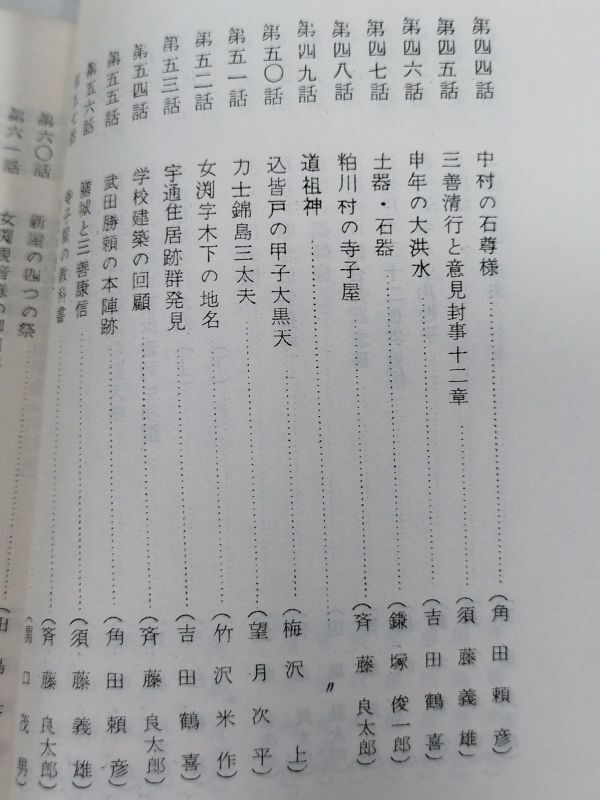 第四四話 中村の石尊様……………………(角田頼彦)
第四五話 三善清行と意見封事十二章……………………(須藤義雄)
第四六話 申年の大洪水……………………(吉田鶴喜)
第四七話 土器・石器……………………(鎌塚俊一郎)
第四八話 粕川村の寺子屋……………………(斉藤良太郎)
第四九話 道祖神……………………〃
第五〇話 込皆戸の甲子大黒天……………………(梅沢 上)
第五一話 力士錦島三太夫……………………(望月次平)
第五二話 女渕字木下の地名……………………(竹沢米作)
第五三話 宇通住居跡群発見……………………(吉田鶴喜)
第五四話 学校建築の回顧……………………(斉藤良太郎)
第五五話 武田勝頼の本陣跡……………………(角田頼彦)
第五六話 膳城と三善康信……………………(須藤義雄)
第五七話 寺子屋の教科書……………………(斉藤良太郎)
第六〇話 新屋の四つの祭……………………(関口茂男)
第六一話 女渕観音様の……………………(田島